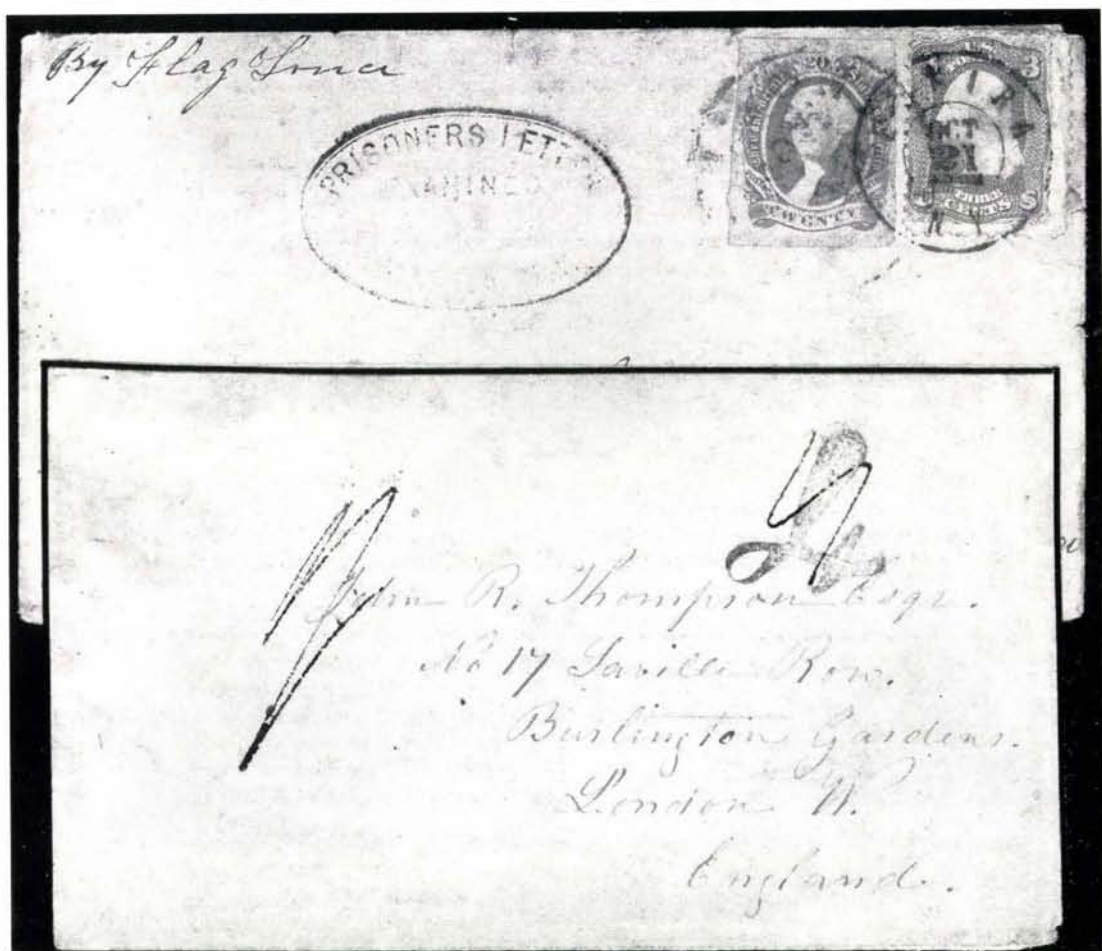 By Flag Truce
PRISONERS LETTER
EXAMINED
20
TWENTY
U.S.
3
OCT
21
N.Y.
THREE
CENTS
John R. Thompson Esqr.
No 17 Saville Row.
Burlington Gardens.
London W.
England.